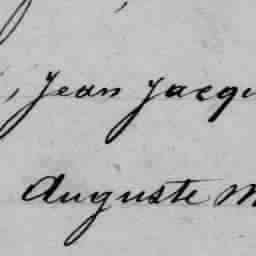 , Jean Jacqu
Auguste M